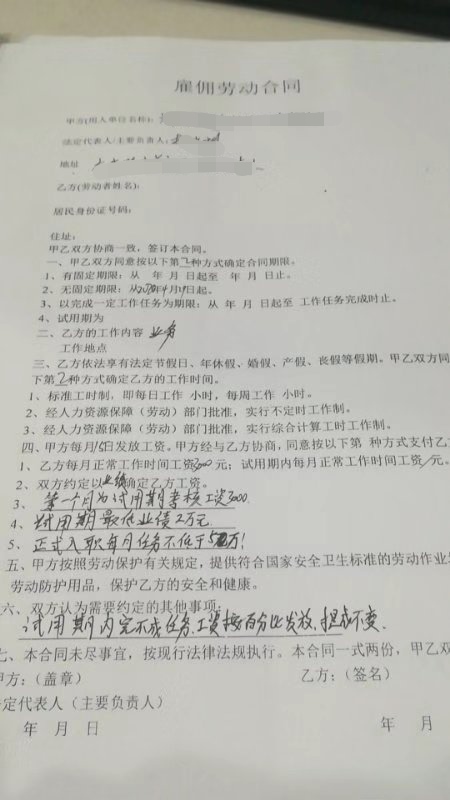 雇佣劳动合同
甲方(用人单位名称):
法定代表人/主要负责人:
地址
乙方(劳动者姓名):
居民身份证号码:
住址:
甲乙双方协商一致，签订本合同。
一、甲乙双方同意按以下第2种方式确定合同期限。
1、有固定期限：从 年 月 日起至 年 月 日止。
2、无固定期限：从 年4月 日起。
3、以完成一定工作任务为期限：从 年 月 日起至 工作任务完成时止。
4、试用期为
二、乙方的工作内容 业务
工作地点
三、乙方依法享有法定节假日、年休假、婚假、产假、丧假等假期。甲乙双方同
下第2种方式确定乙方的工作时间。
1、标准工时制，即每日工作 小时，每周工作 小时。
2、经人力资源保障（劳动）部门批准，实行不定时工作制。
3、经人力资源保障（劳动）部门批准，实行综合计算工时工作制。
四、甲方每月15日发放工资。甲方经与乙方协商，同意按以下第 种方式支付乙方
1、乙方每月正常工作时间工资3000元；试用期内每月正常工作时间工资/元。
2、双方约定以业绩确定乙方工资。
3、第一个月为试用期考核工资3000.
4、试用期最低业绩2万元
5、正式入职每月任务不低于5万!
五、甲方按照劳动保护有关规定，提供符合国家安全卫生标准的劳动作业
劳动防护用品，保护乙方的安全和健康。
六、双方认为需要约定的其他事项：
试用期内完不成任务,工资按百分比发放,提成不变.
七、本合同未尽事宜，按现行法律法规执行。本合同一式两份，甲乙双
甲方：（盖章） 乙方：（签名）
定代表人（主要负责人）
年 月 日 年 月